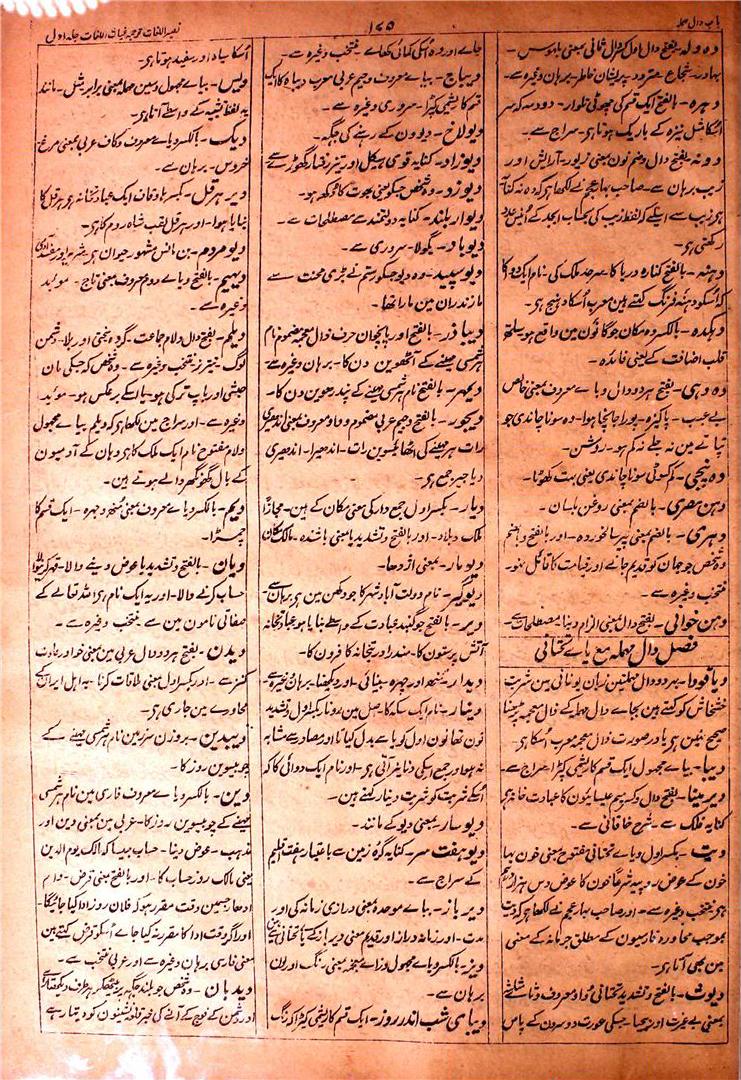 باب دال مہملہ
۱۷۵
نصیر اللغات ترجمہ غیاث اللغات جلد اول
دہ ولہ۔ بفتح دال اول کنزل ثانی بمعنی بابوس۔
بہادر۔ شجاع۔ متردد۔ پریشان خاطر۔ برہان وغیرہ سے۔
دہرہ۔ بالفتح ایک قسم کی چھوٹی تلوار۔ دو دمہ کہ سر
اسکا مثل نیزہ کے باریک ہوتا ہی۔ سراج سے۔
دہ نہ بفتح دال وضم نون بمعنی زیور۔ آرایش اور
زیب برہان سے۔ صاحب بہار عجم نے لکھا ہے کہ دہ نہ کنایہ
ہی زیب سے اسلیے کہ لفظ زیب کی بحساب ابجد کے اُنیس عدد
رکھتی ہی۔
دہنہ۔ بالفتح کنارہ دریا کا۔ سرحد ملک کی۔ نام ایک دوا کا
کہ اُسکو دہنہ فرنگ کہتے ہین معرب اُسکا دہنج ہی۔
دہکدہ۔ بالکسر وہ مکان جو گانون مین واقع ہو ساتھ
قلب اضافت کے یعنی خانہ دہ۔
دہ دہی۔ بفتح ہر دو دال و یاے معروف بمعنی خالص
بے عیب۔ پاکیزہ۔ پورا جانچا ہوا۔ وہ سونا چاندی جو
تپانے مین نہ جلے نہ کم ہو۔ روشن۔
دہ پنجی۔ کم کسوٹی سونا چاندی یعنی بہت کھوٹا۔
دہن مصری۔ بالضم بمعنی روغن بلسان۔
دہری۔ بالضم بمعنی پیر سالخوردہ۔ اور بالفتح وبالضم
وہ شخص جو جہان کو قدیم جانے اور قیامت کا قائل نہو۔
منتخب وغیرہ سے۔
دہن خوانی۔ بفتح دال بمعنی الزام دینا مصطلحات سے۔
فصل دال مہملہ مع یاے تحتانی
دیاقودا۔ بہر دو دال مہملتین زبان یونانی مین شربت
خشخاش کو کہتے ہین بجاے دال مہملہ کے ذال معجمہ پڑھنا
صحیح نہین ہی ہاں در صورت ذال معجمہ معرب اُسکا ہی۔
دیبا۔ بیاے مجہول ایک قسم کا ریشمی کپڑا سراج سے۔
دیر مینا۔ بفتح دال و کسر میم عیسایئون کا عبادت خانہ
کنایہ فلک سے شرح خاقانی سے۔
دیت۔ بکسر اول و یاے تحتانی مفتوح بمعنی خون بہا
خون کے عوض روپیہ شرعاً خون کا عوض دس ہزار درم
ہی منتخب وغیرہ سے۔ اور صاحب بہار عجم نے لکھا ہی کہ دیت
بموجب محاورہ فارسیون کے مطلق جرمانہ کے معنی
مین بھی آتا ہی۔
دیوث۔ بالفتح و تشدید تحتانی و واو معروف و ثاے مثلثہ
بمعنی بے غیرت اور بیحیا۔ جسکی عورت دوسرون کے پاس
جاے اور وہ اُسکی کمائی کھاے۔ منتخب وغیرہ سے۔
دیباج۔ بیاے معروف و جیم عربی معرب دیباہ کا ایک
قسم کا ریشمی کپڑا۔ سروری وغیرہ سے۔
دیولاخ۔ دیوون کے رہنے کی جگہ۔
دیوزاد۔ کنایہ قوی ہیکل اور تیز رفتار گھوڑے سے
دیوزد۔ وہ شخص جسکو یعنی بھوت کا دُکھ ہو۔
دیوار بلند۔ کنایہ دولتمند سے مصطلحات سے۔
دیوباد۔ بگولا۔ سروری سے۔
دیو سپید۔ وہ دیو جسکو رستم نے بڑی محنت سے
مازندران مین مارا تھا۔
دیباذر۔ بالفتح اور پانچوان حرف ذال معجمہ مضموم نام
شمسی مہینے کے آٹھوین دن کا۔ برہان وغیرہ سے۔
دیمہر۔ بالفتح نام شمسی مہینے کے پندرہوین دن کا۔
دیجور۔ بالفتح وجیم عربی مضموم و واو معروف بمعنی اندھیری
رات ہر مہینے کی اٹھائیسوین رات۔ اندھیرا۔ اندھیری
دیاجیر جمع ہی۔
دیار۔ بکسر اول جمع دار کی معنی مکان کے ہین۔ مجازاً
ملک و بلاد۔ اور بالفتح و تشدید یا بمعنی باشندہ۔ مالک مکان
دیومار۔ بمعنی اژدھا۔
دیوگیر۔ نام دولت آباد شہر کا جو دکھن مین ہی برہان سے
دیر۔ بالفتح جو گنبد عبادت کے واسطے بنایا ہو عبادتخانہ
آتش پرستون کا۔ مندر اور بتخانہ کافرون کا۔
دیدار۔ مُنھ اور چہرہ۔ بینائی۔ اور دیکھنا۔ برہان وغیرہ سے
دینار۔ نام ایک سکہ کا۔ اصل مین دنّار بکسر اول و تشدید
نون تھا نون اول کو یا سے بدل کیا تا اور مصادر سے مشابہ
نہ ہو اور جمع اسکی دنانیر آتی ہی۔ اور نام ایک دوائی کا کہ
اُسکے شربت کو شربت دینار کہتے ہین۔
دیوسار۔ بمعنی دیو کے مانند۔
دیو ہفت سر۔ کنایہ کرہ زمین سے باعتبار ہفت اقلیم
کے سراج سے۔
دیر باز۔ بباے موحدہ بمعنی درازی زمانہ کی اور
مدت۔ اور زمانہ دراز اور قدیم
دیز۔ بالکسر و یاے مجہول و زاے معجمہ بمعنی۔ رنگ اور لون
برہان سے۔
دیباے شب اندر روز۔ ایک قسم کا ریشمی کپڑا کہ رنگ
اُسکا سیاہ اور سفید ہوتا ہی۔
دیس۔ بیاے مجہول و سین مہملہ بمعنی برابر۔ مثل۔ مانند
یہ لفظ تشبیہ کے واسطے آتا ہی۔
دیک۔ بالکسر و یاے معروف و کاف عربی بمعنی مرغ
خروس۔ برہان سے۔
دیر ہرقل۔ بکسر ہا و قاف ایک عبادتخانہ ہی ہرقل کا
بنایا ہوا۔ اور ہرقل لقب شاہ روم کا ہی۔
دیو مردم۔ بن مانس مشہور حیوان ہی شریر اور مفسد آدمی
دیہیم۔ بالفتح و یاے دوم معروف بمعنی تاج۔ موید
وغیرہ سے۔
دیلم۔ بفتح دال و لام جماعت۔ گروہ سختی اور بلا۔ دشمن
لوگ منتخب وغیرہ سے۔ وہ شخص کہ جسکی مان
حبشی اور باپ ترکی ہو۔ یا اسکے برعکس ہو۔ موید
وغیرہ سے۔ اور سراج مین لکھا ہی کہ دیلم بیاے مجہول
و لام مفتوح نام ایک ملک کا ہی وہان کے آدمیون
کے بال گھونگھر والے ہوتے ہین۔
دیم۔ بالکسر و یاے معروف بمعنی منھ و چہرہ۔ ایک قسم کا
چمڑا۔
دیان۔ بالفتح و تشدید یا عوض دینے والا۔ قہر کرنیوالا
حساب کرنے والا۔ اور یہ ایک نام ہی اللہ تعالے کے
صفاتی نامون مین سے منتخب وغیرہ سے۔
دیدن۔ بفتح ہر دو دال عربی مین بمعنی خو اور عادت
کنز سے۔ اور بکسر اول بمعنی ملاقات کرنا۔ یہ اہل ایران کے
محاورے مین جاری ہی۔
دیبدین۔ بروزن سرزمین نام شمسی مہینے کے
چوبیسوین روز کا۔
دین۔ بالکسر و یاے معروف فارسی مین نام شمسی
مہینے کے چوبیسوین روز کا۔ عربی مین بمعنی دین اور
مذہب۔ عوض دینا۔ حساب جیسا کہ مالک یوم الدین
یعنی مالک روز حساب کا۔ اور بالفتح بمعنی قرض۔ وام
اُدھار جسمین وقت مقرر ہو کہ فلان روز ادا کیا جائیگا۔
اور اگر وقت ادا کا مقرر نہ کیا جاے اُسکو قرض کہتے ہین
معنی فارسی برہان وغیرہ سے اور عربی منتخب سے۔
دیدبان۔ وہ شخص جو بلند جگہ پر بیٹھکر ہر طرف دیکھتا رہے
اور دشمن کے فوج کے آنے کی خبر اپنے لشکریون کو دیتا رہے